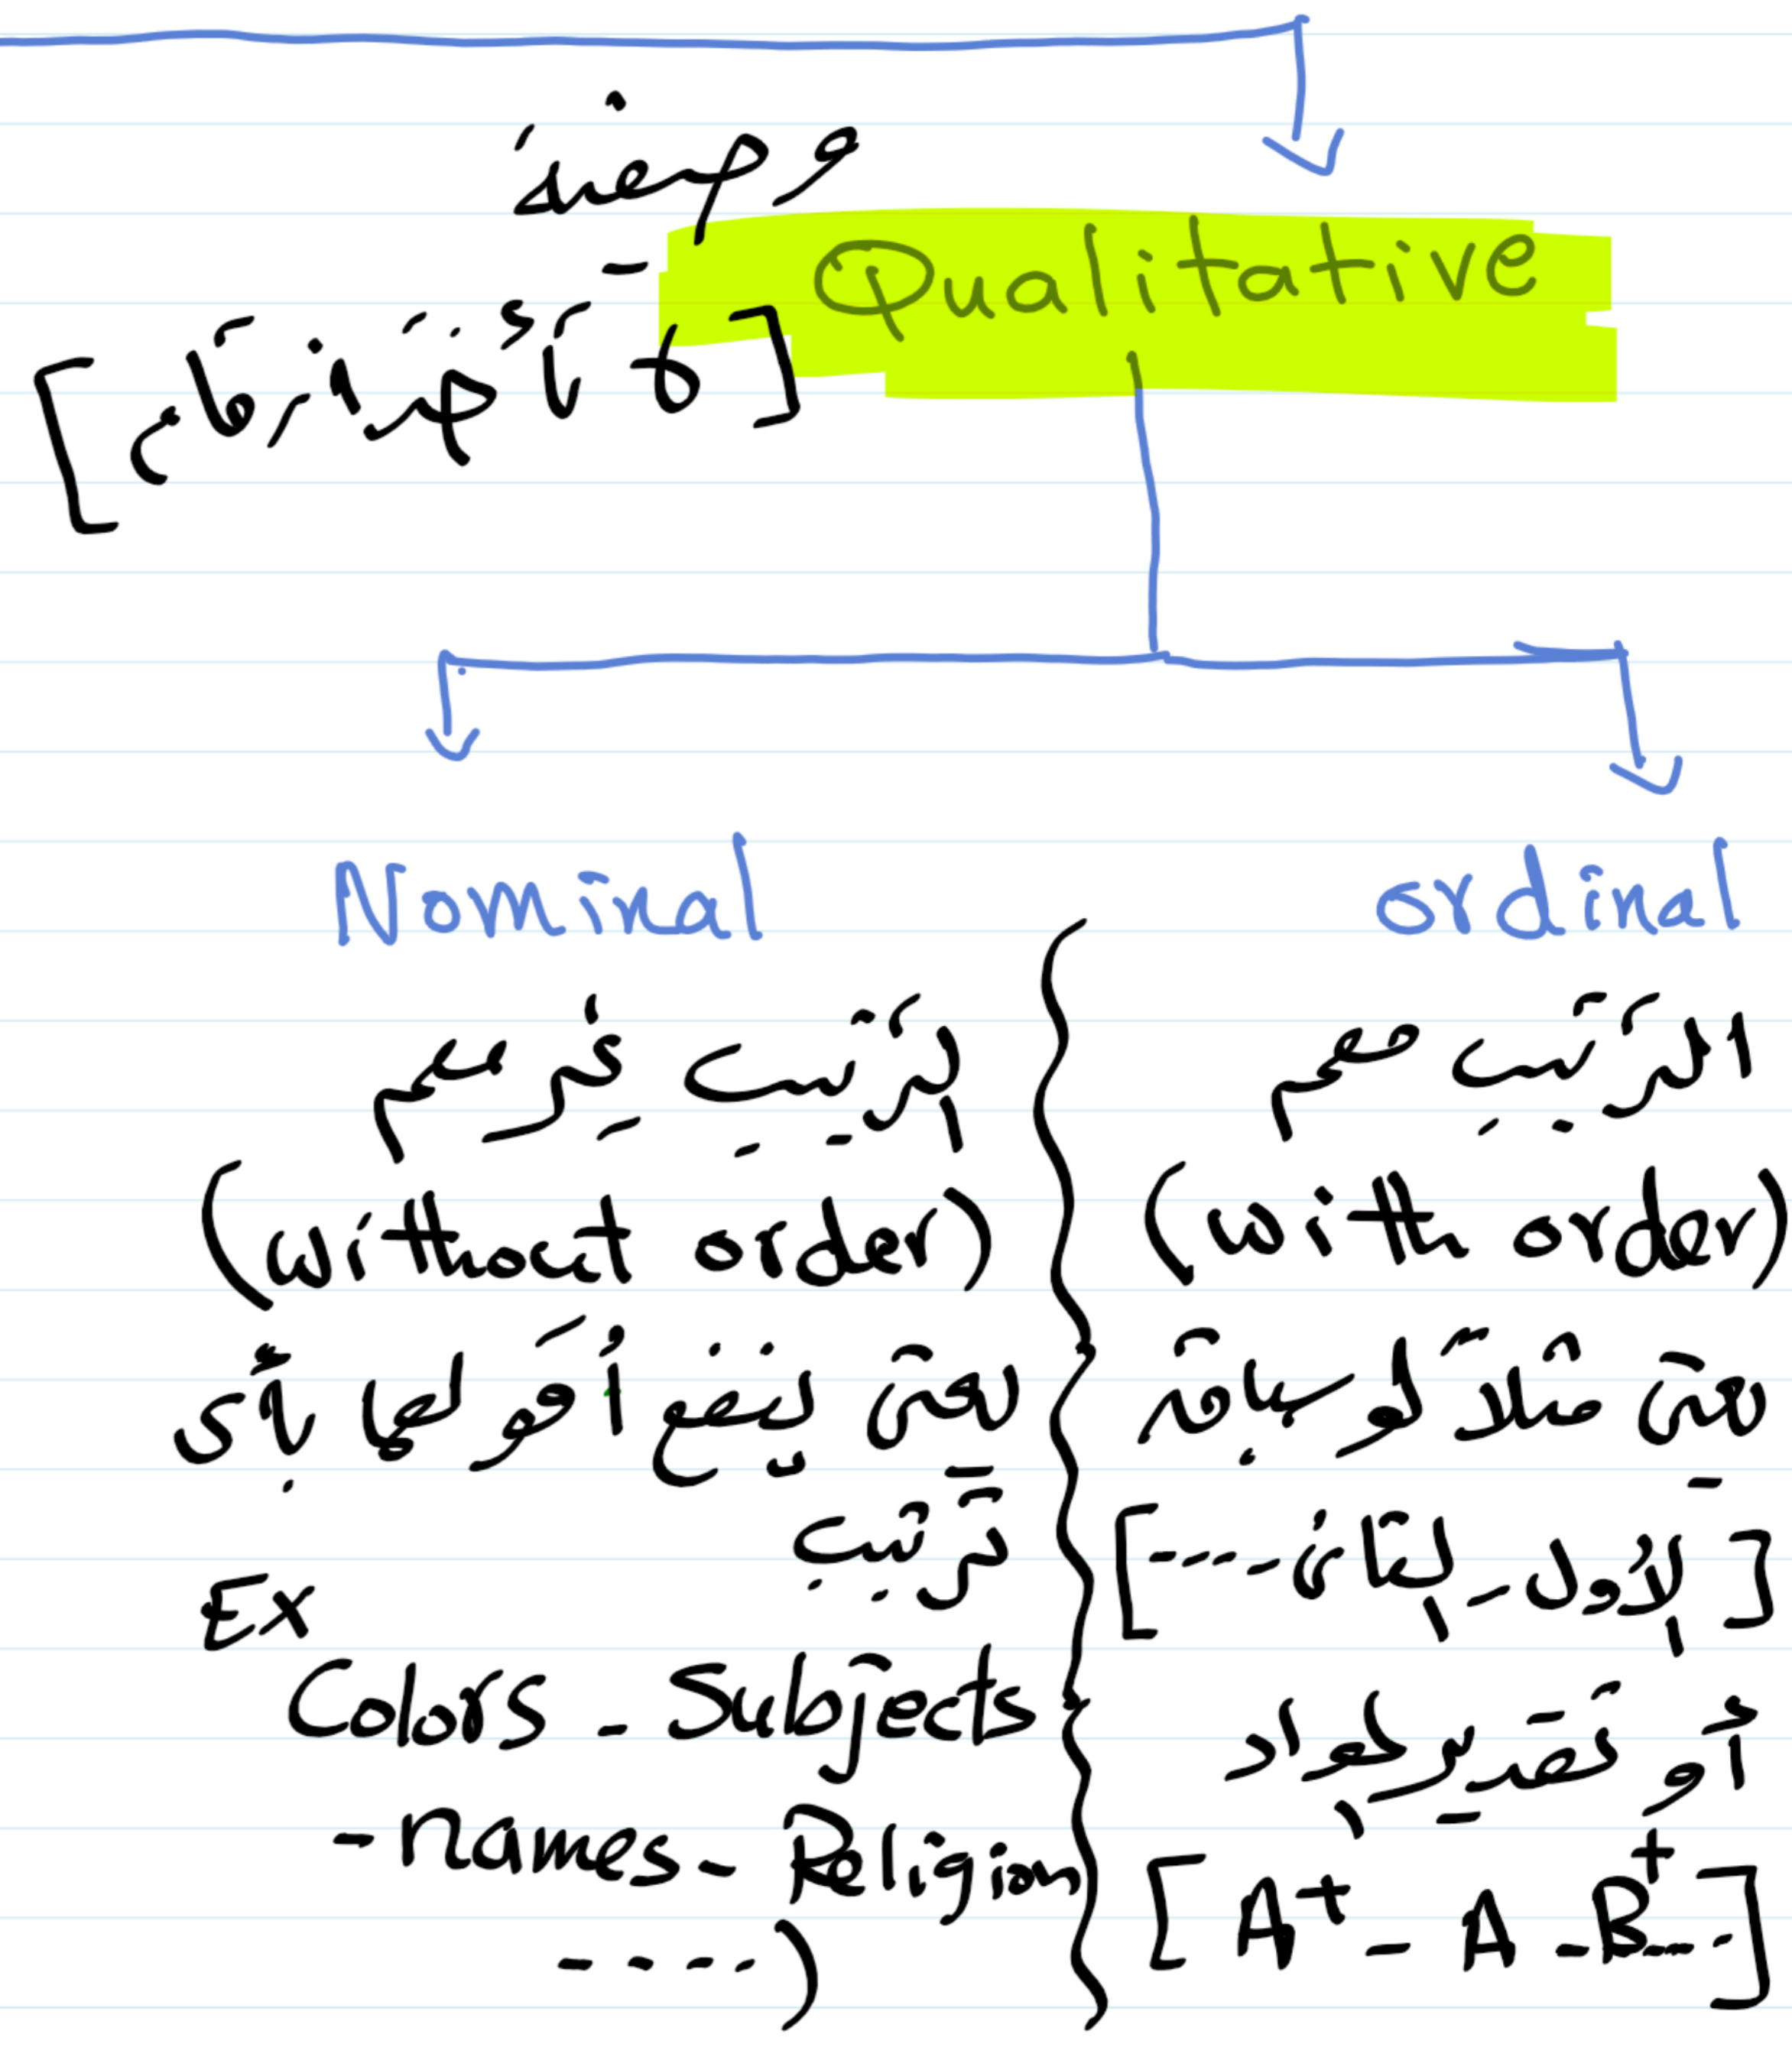 وصفية
Qualitative
[لا تأخذ أرقام]
Nominal
الترتيب غير مهم
(without order)
يعنى ينفع أقولها بأى
ترتيب
Ex
Colors - Subjects
- names - Religion
- - - -)
ordinal
الترتيب مهم
(with order)
يعنى مثلاً لو سباق
[الأول - الثانى ----]
أو تقدير المواد
[A+ - A - B+ ---]